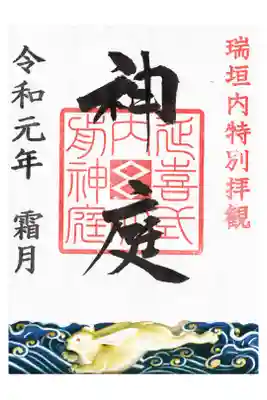 瑞垣内特別拝観
神庭
延喜式
内
有神庭
令和元年 霜月